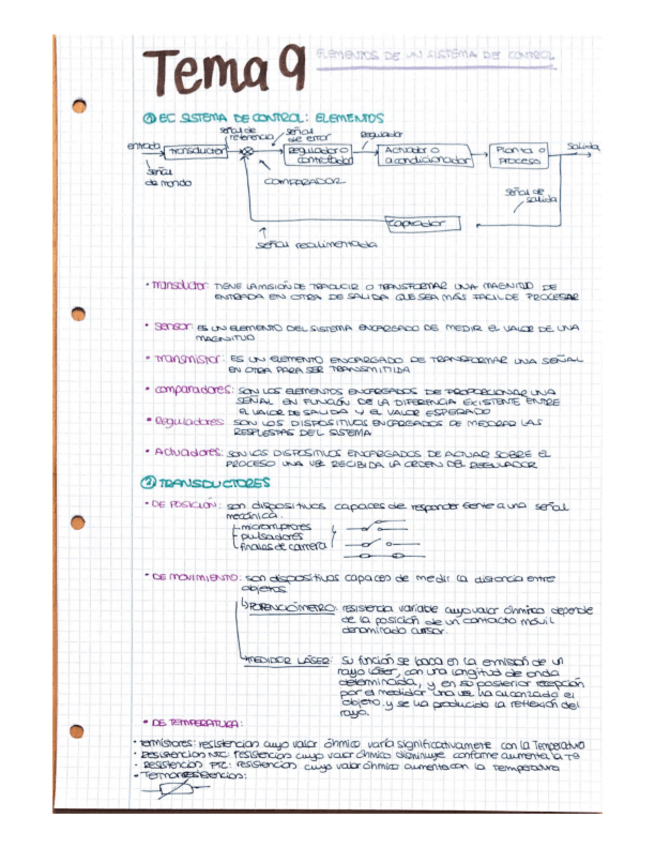 Tema 9 ELEMENTOS DE UN SISTEMA DE CONTROL
① EC SISTEMA DE CONTROL: ELEMENTOS
entrada
Transductor
señal de referencia
señal de error
Regulador o controlador
Regulador
Actuador o acondicionador
Planta o Proceso
Salida
señal de mando
COMPARADOR
señal de salida
Captador
señal realimentada
• Transductor: TIENE LA MISIÓN DE TRADUCIR O TRANSFORMAR UNA MAGNITUD DE
ENTRADA EN OTRA DE SALIDA QUE SEA MÁS FACIL DE PROCESAR
• Sensor: ES UN ELEMENTO DEL SISTEMA ENCARGADO DE MEDIR EL VALOR DE UNA
MAGNITUD
• Transmisor: ES UN ELEMENTO ENCARGADO DE TRANSFORMAR UNA SEÑAL
EN OTRA PARA SER TRANSMITIDA
• Comparadores: SON LOS ELEMENTOS ENCARGADOS DE PROPORCIONAR UNA
SEÑAL EN FUNCIÓN DE LA DIFERENCIA EXISTENTE ENTRE
EL VALOR DE SALIDA Y EL VALOR ESPERADO
• Reguladores: SON LOS DISPOSITIVOS ENCARGADOS DE MEJORAR LAS
RESPUESTAS DEL SISTEMA
• Actuadores: SON LOS DISPOSITIVOS ENCARGADOS DE ACTUAR SOBRE EL
PROCESO UNA VEZ RECIBIDA LA ORDEN DEL REGULADOR
② TRANSDUCTORES
• DE POSICIÓN: son dispositivos capaces de responder frente a una señal
mecánica.
microrruptores
pulsadores
finales de carrera
• DE MOVIMIENTO: son dispositivos capaces de medir la distancia entre
objetos
POTENCIÓMETRO: resistencia variable cuyo valor óhmico depende
de la posición de un contacto móvil
denominado cursor.
MEDIDOR LÁSER: Su función se basa en la emisión de un
rayo láser, con una longitud de onda
determinada, y en su posterior recepción
por el medidor una vez ha alcanzado el
objeto y se ha producido la reflexión del
rayo.
• DE TEMPERATURA:
• Termistores: resistencias cuyo valor óhmico varía significativamente con la Temperatura
• Resistencias NTC: resistencias cuyo valor óhmico disminuye conforme aumenta la Tª
• Resistencias PTC: resistencias cuyo valor óhmico aumenta con la temperatura
• Termorresistencias: